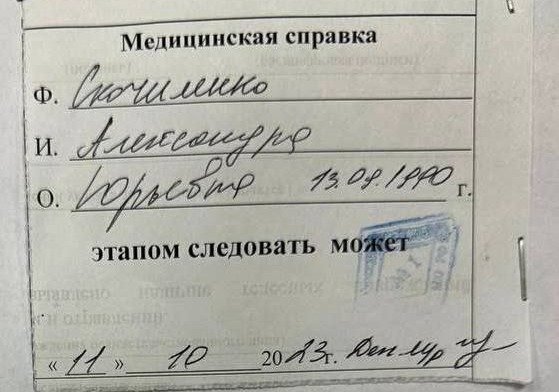 Медицинская справка
Ф. Скочиленко
И. Александра
О. Юрьевна 13.09.1990 г.
этапом следовать может
« 11 » 10 2023 г.